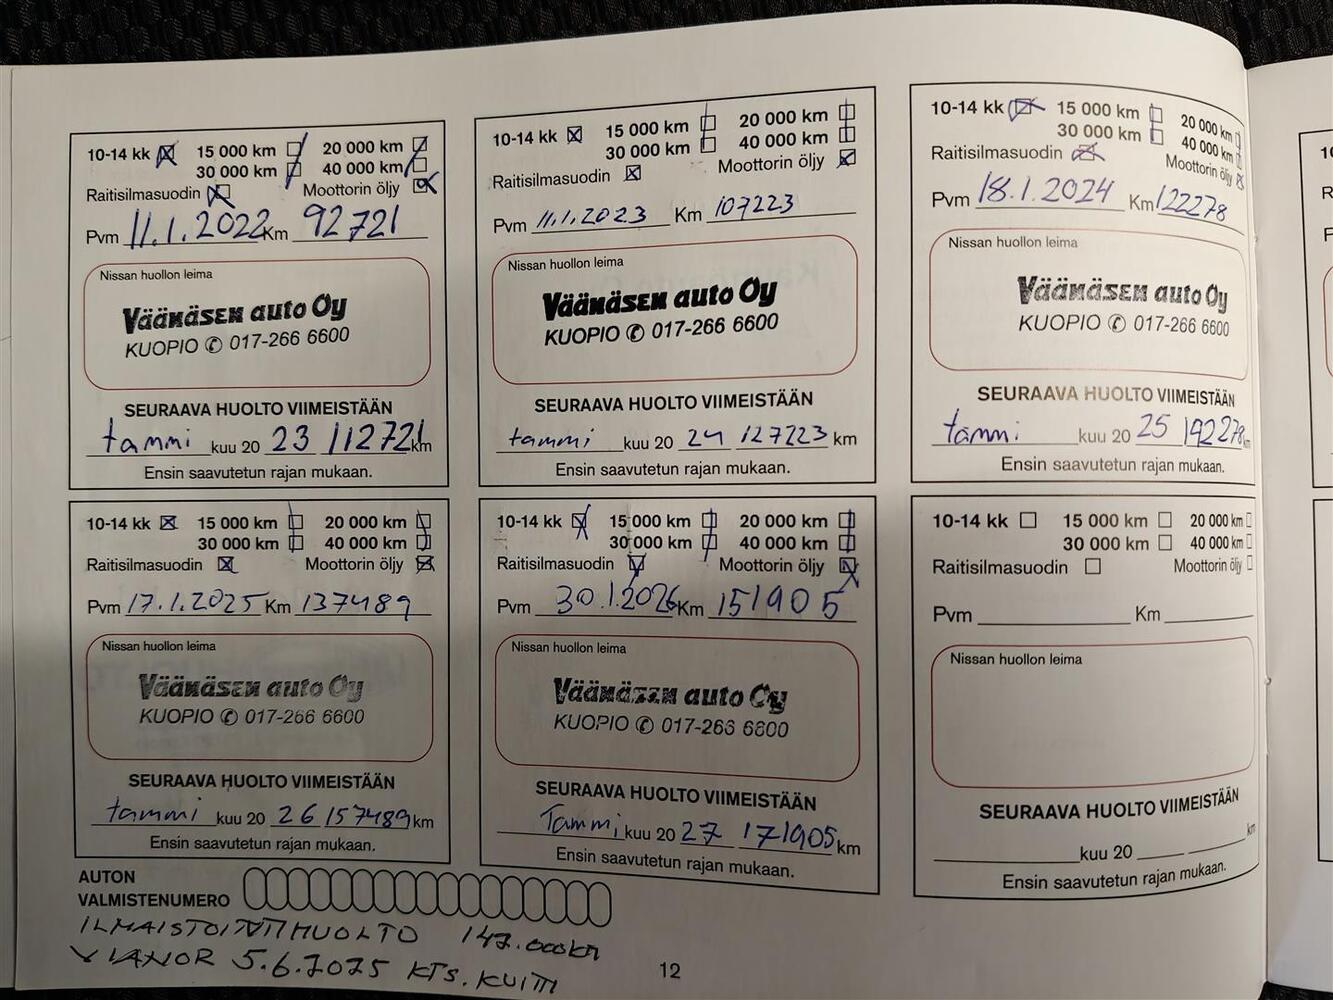 10-14 kk 15 000 km 20 000 km
30 000 km 40 000 km
Raitisilmasuodin Moottorin öljy
Pvm 11.1.2022 Km 92721
Nissan huollon leima
Väänäsen auto Oy
KUOPIO ✆ 017-266 6600
SEURAAVA HUOLTO VIIMEISTÄÄN
tammi kuu 20 23 112721 km
Ensin saavutetun rajan mukaan.
10-14 kk 15 000 km 20 000 km
30 000 km 40 000 km
Raitisilmasuodin Moottorin öljy
Pvm 11.1.2023 Km 107223
Nissan huollon leima
Väänäsen auto Oy
KUOPIO ✆ 017-266 6600
SEURAAVA HUOLTO VIIMEISTÄÄN
tammi kuu 20 24 127223 km
Ensin saavutetun rajan mukaan.
10-14 kk 15 000 km 20 000 km
30 000 km 40 000 km
Raitisilmasuodin Moottorin öljy
Pvm 18.1.2024 Km 122278
Nissan huollon leima
Väänäsen auto Oy
KUOPIO ✆ 017-266 6600
SEURAAVA HUOLTO VIIMEISTÄÄN
tammi kuu 20 25 142278 km
Ensin saavutetun rajan mukaan.
10-14 kk 15 000 km 20 000 km
30 000 km 40 000 km
Raitisilmasuodin Moottorin öljy
Pvm 17.1.2025 Km 137489
Nissan huollon leima
Väänäsen auto Oy
KUOPIO ✆ 017-266 6600
SEURAAVA HUOLTO VIIMEISTÄÄN
tammi kuu 20 26 157489 km
Ensin saavutetun rajan mukaan.
10-14 kk 15 000 km 20 000 km
30 000 km 40 000 km
Raitisilmasuodin Moottorin öljy
Pvm 30.1.2026 Km 151905
Nissan huollon leima
Väänäsen auto Oy
KUOPIO ✆ 017-266 6600
SEURAAVA HUOLTO VIIMEISTÄÄN
Tammi kuu 20 27 171905 km
Ensin saavutetun rajan mukaan.
10-14 kk 15 000 km 20 000 km
30 000 km 40 000 km
Raitisilmasuodin Moottorin öljy
Pvm Km
Nissan huollon leima
SEURAAVA HUOLTO VIIMEISTÄÄN
kuu 20 km
Ensin saavutetun rajan mukaan.
AUTON
VALMISTENUMERO
ILMAISTOINTIHUOLTO 147.000km
VIANOR 5.6.2025 KTS. KUITTI
12